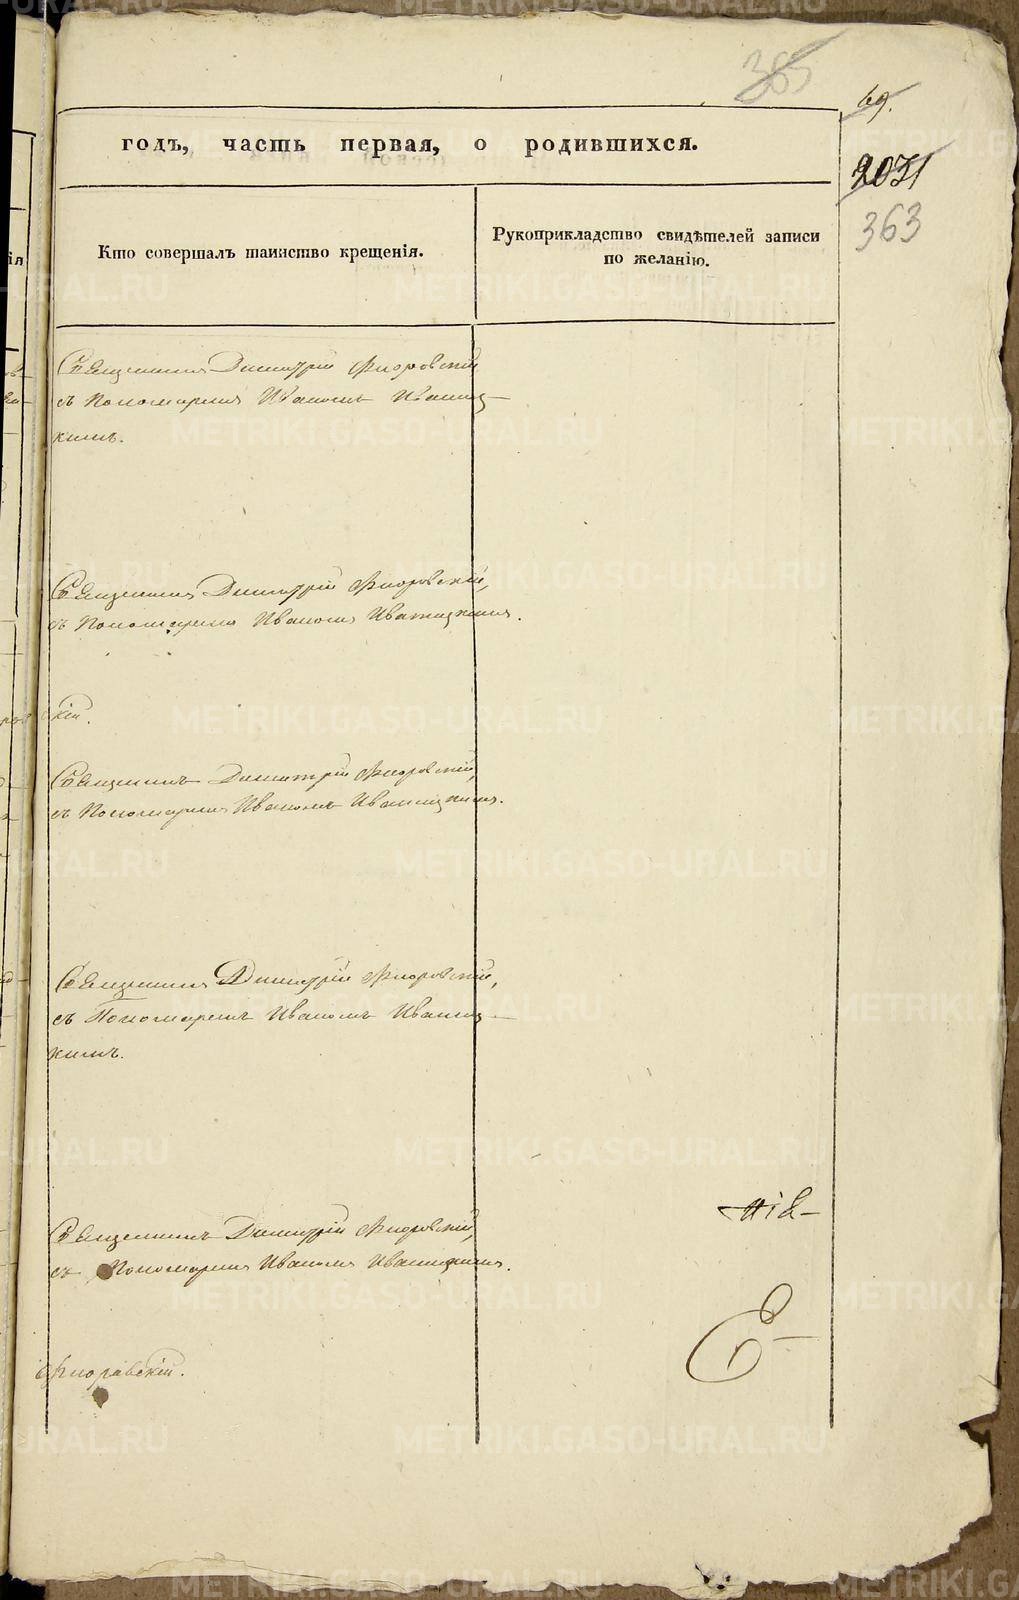 365
69.
годъ, часть первая, о родившихся.
2031
363
Кто совершалъ таинство крещенія.
Рукоприкладство свидѣтелей записи
по желанію.
Священникъ Димитрій Флоровскій
съ Пономаремъ Иваномъ Иваниц-
кимъ.
Священникъ Димитрій Флоровскій,
съ Пономаремъ Иваномъ Иваницкимъ.
скій.
Священникъ Димитрій Флоровскій,
съ Пономаремъ Иваномъ Иваницкимъ.
Священникъ Димитрій Флоровскій,
съ Пономаремъ Иваномъ Иваниц-
кимъ.
Священникъ Димитрій Флоровскій,
съ Пономаремъ Иваномъ Иваницкимъ.
Флоровскій.
METRIKI.GASO-URAL.RU